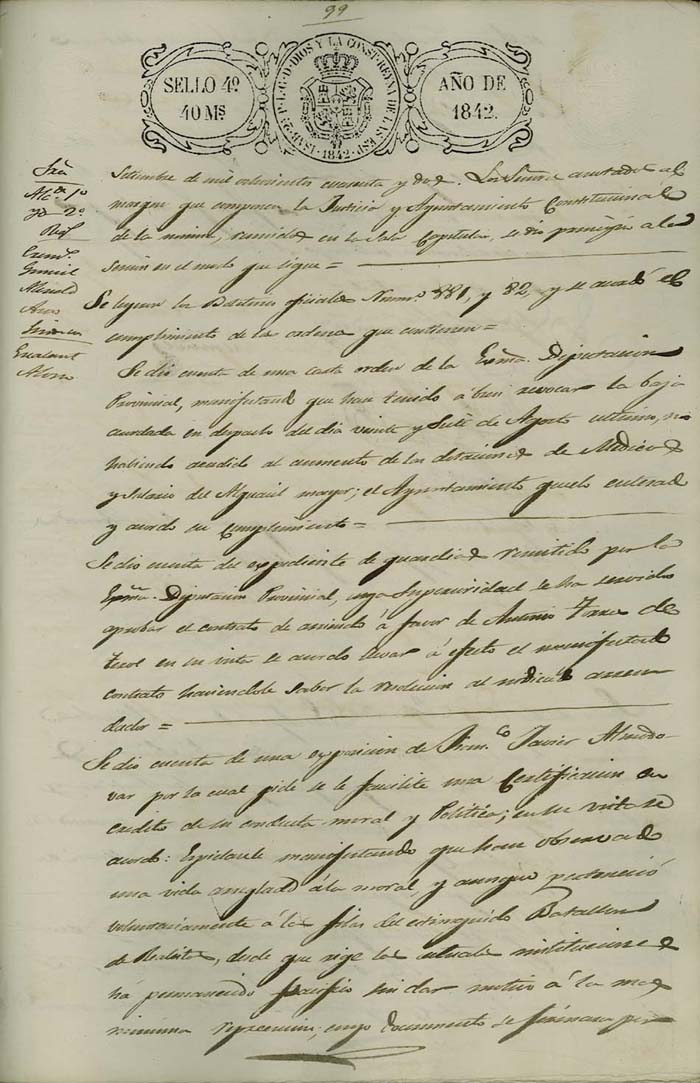 99
SELLO 4º
40 Mˢ
ISAB. 2ª P. L. G. D. DIOS Y LA CONST. REYNA DE LAS ESP.
1842
AÑO DE
1842.
Alcᵉ 1º
yd 2º
Setiembre de mil ochocientos cuarenta y dos. Los Señores anotados al
margen que componen la Justicia y Ayuntamiento Constitucional
de la misma, reunidos en la Sala Capitular, se dio principio a la
sesion en el modo que sigue =
Se leyeron los Boletines oficiales Numˢ 881, y 82, y se acordó el
cumplimiento de las ordenes que contienen =
Se dio cuenta de una carta orden de la Exma. Diputacion
Provincial, manifestando que han tenido á bien revocar la baja
acordada en despacho del dia veinte y siete de Agosto ultimo, no
habiendo accedido al aumento de las dotaciones de Medicos
y Salario del Alguacil mayor; el Ayuntamiento quedó enterado
y acordo su cumplimiento =
Se dio cuenta del expediente de guardias remitido por la
Exma. Diputacion Provincial, cuya Superioridad se ha servido
aprobar el contrato de arriendo á favor de Antonio de
en su vista se acordo llevar á efecto el manifestado
contrato haciendole saber la resolucion al indicado arren
dador =
Se dio cuenta de una exposicion de Franᶜᵒ Javier Almodo-
var por la cual pide se le facilite una Certificacion que
acredite de su conducta moral y Politica; en su vista se
acordo: Espidasele manifestando que han observado
una vida arreglada á la moral, y aunque perteneció
voluntariamente a las filas del extinguido Batallon
de Realistas, desde que rige las actuales instituciones
ha permanecido pacifico sin dar motivo á la mas
minima reprension; cuyo documento se firmara por